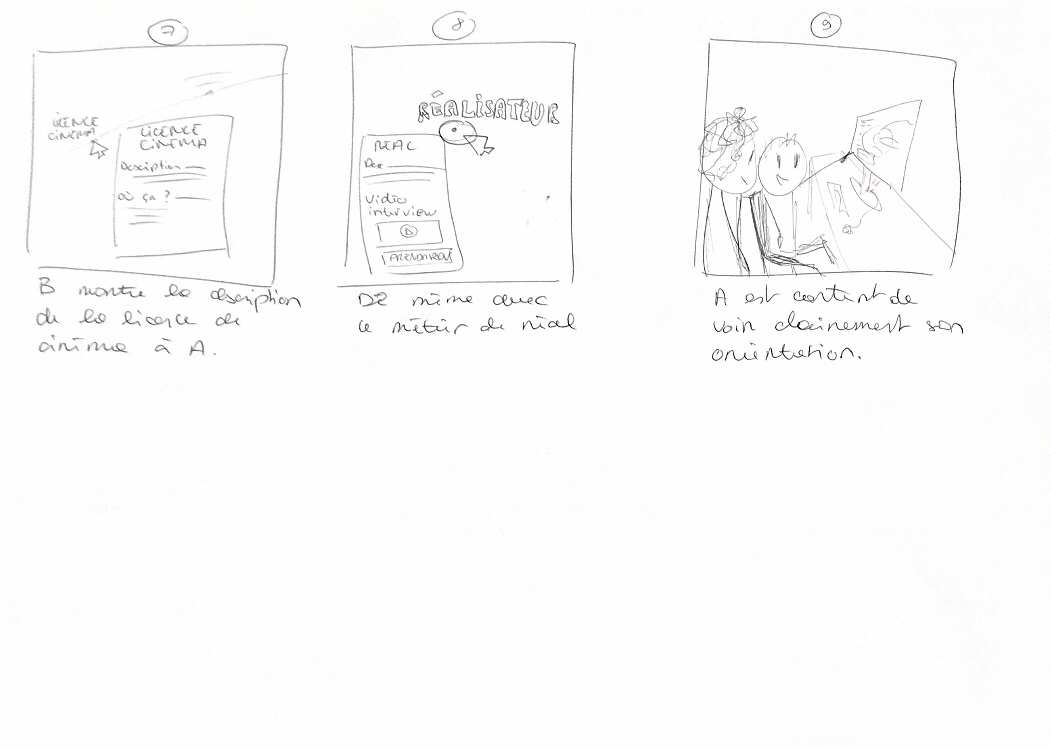 7
LICENCE
CINEMA
LICENCE
CINEMA
Description
où ça ?
B montre la description
de la licence de
cinéma à A.
8
RÉALISATEUR
REAL
Des
Vidéo
interview
De même avec
le métier de réal
9
A est content de
voir clairement son
orientation.